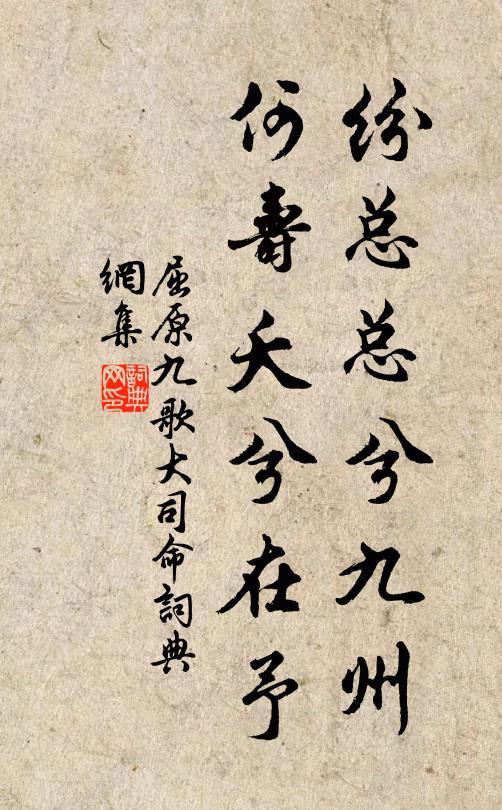 纷总总兮九州
何寿夭兮在予
屈原九歌大司命詞典
網集
詞典
网印